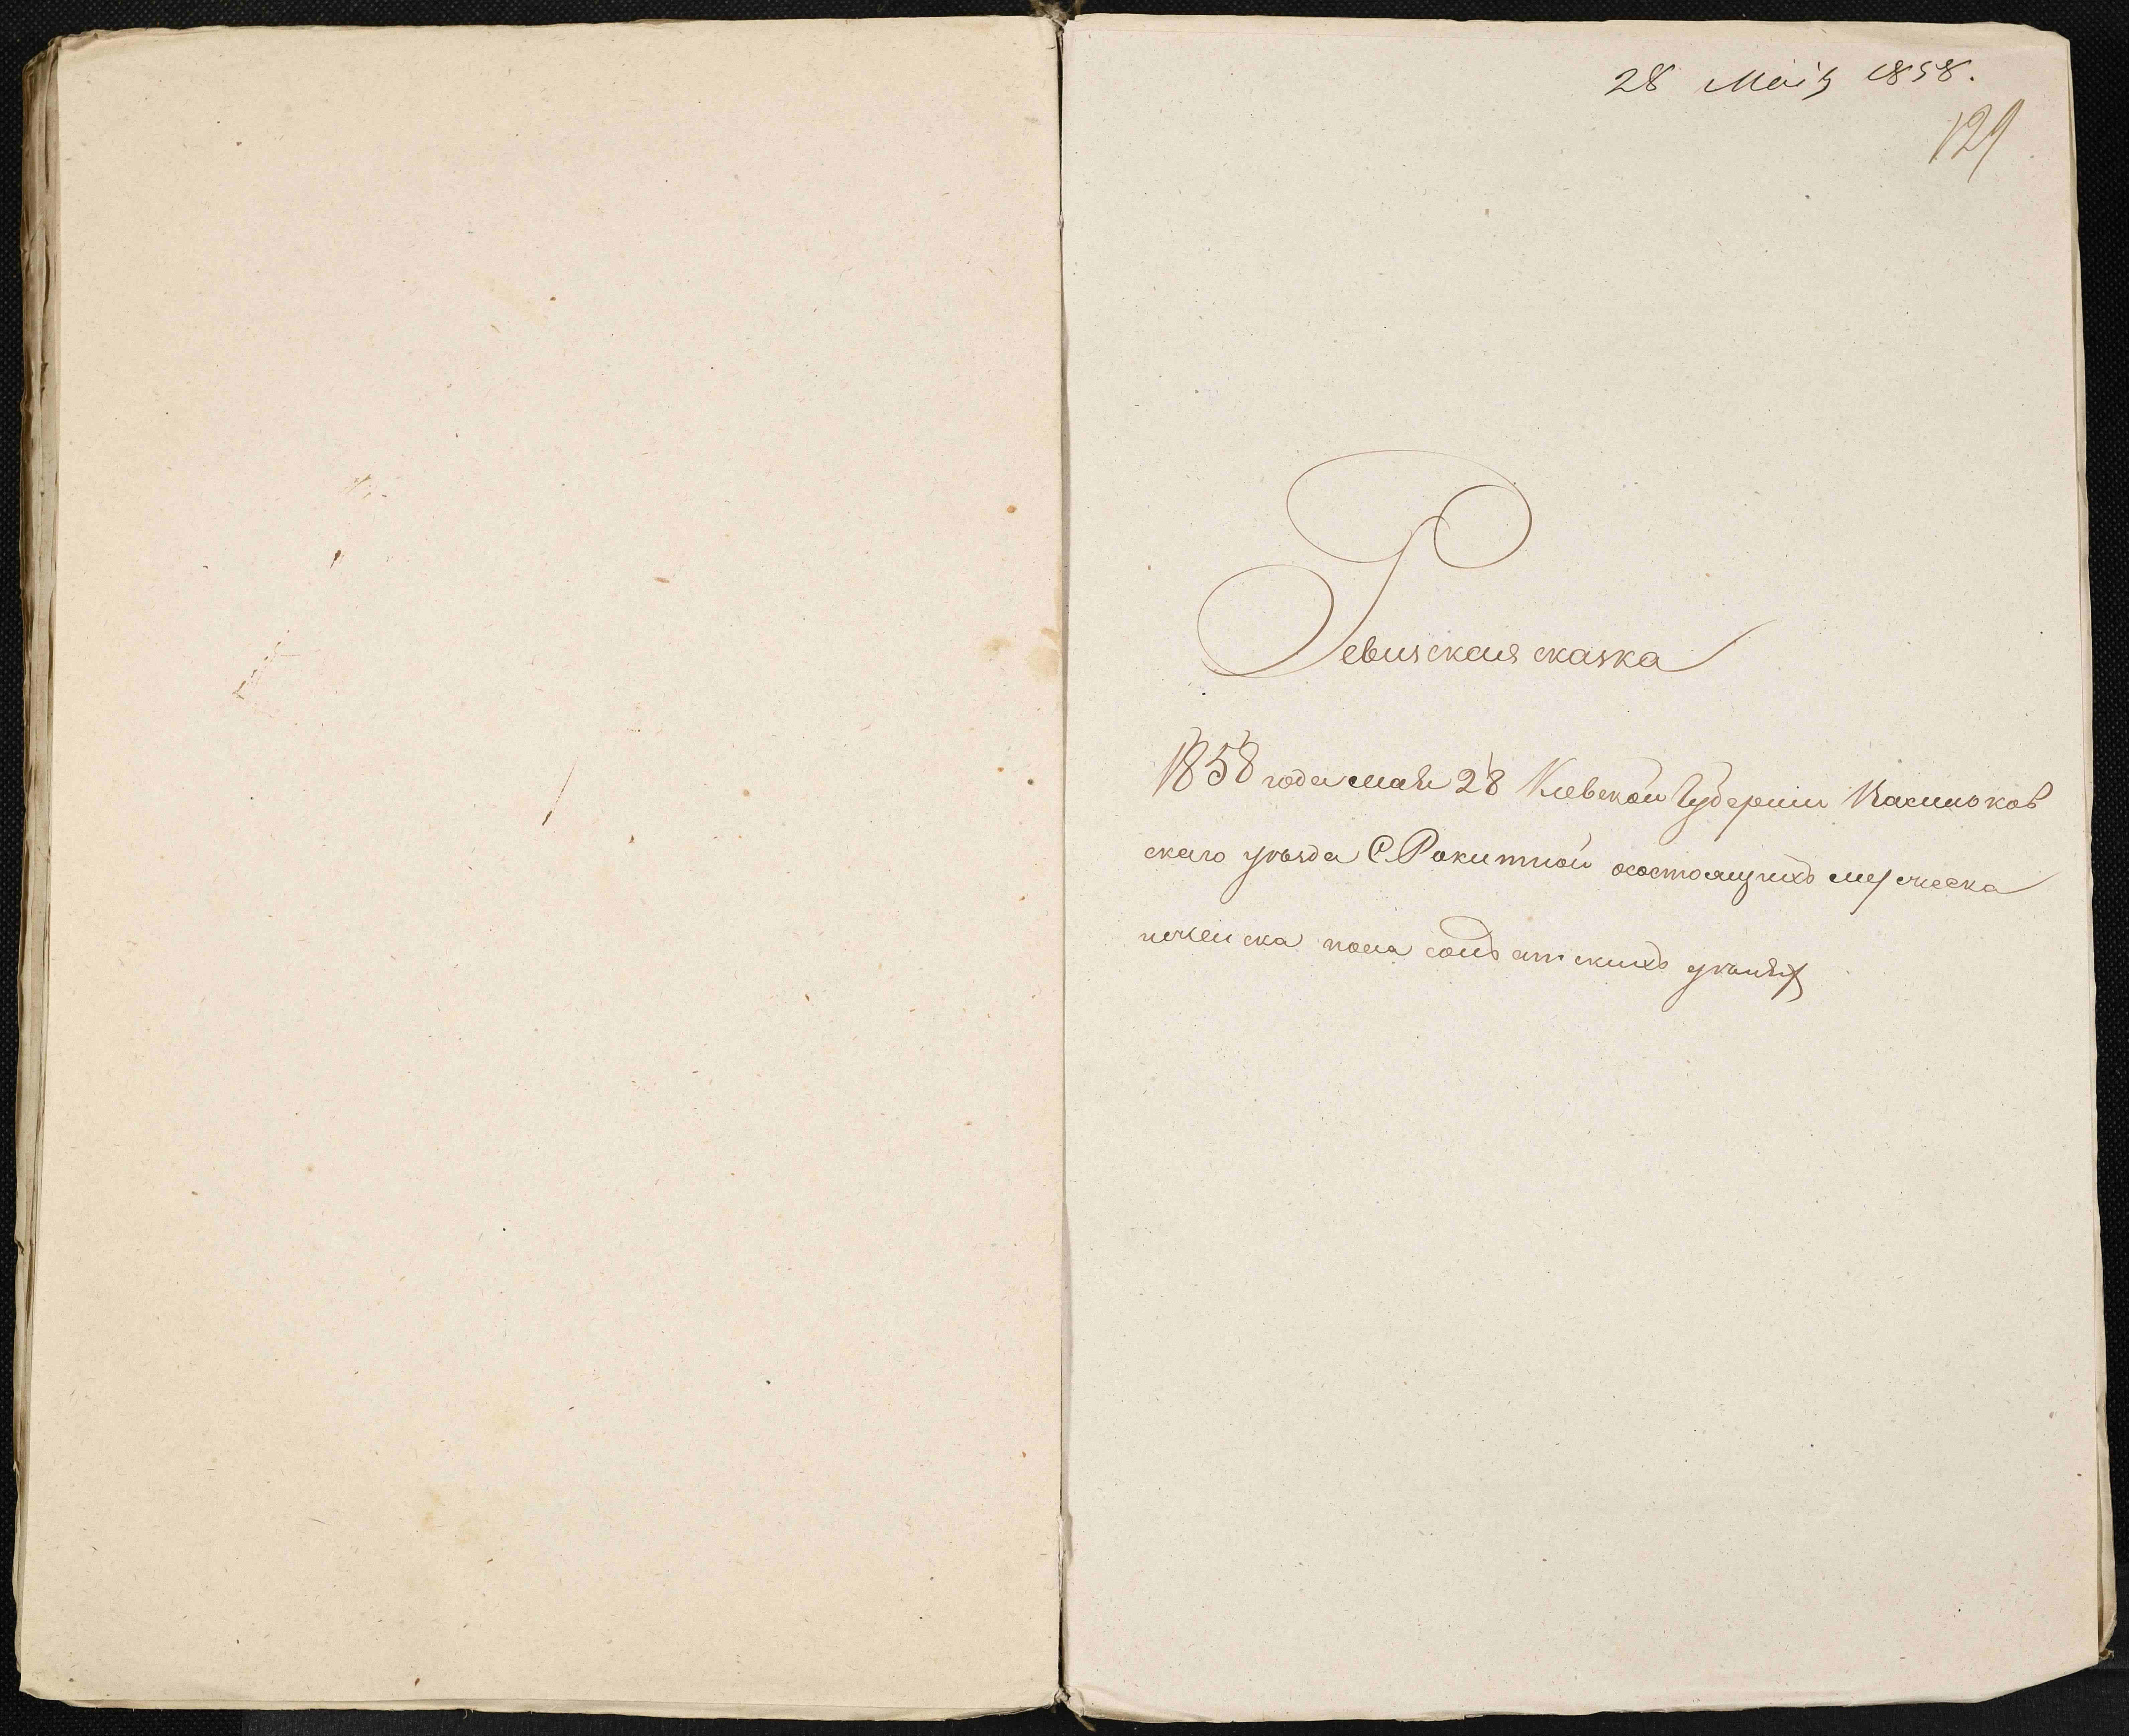 28 Маія 1858.
129
Ревизская сказка
1858 года мая 28 Киевской Губернии Васильков
скаго уѣзда С. Рокитной о состоящихъ мужеска
и женска пола солдатскихъ